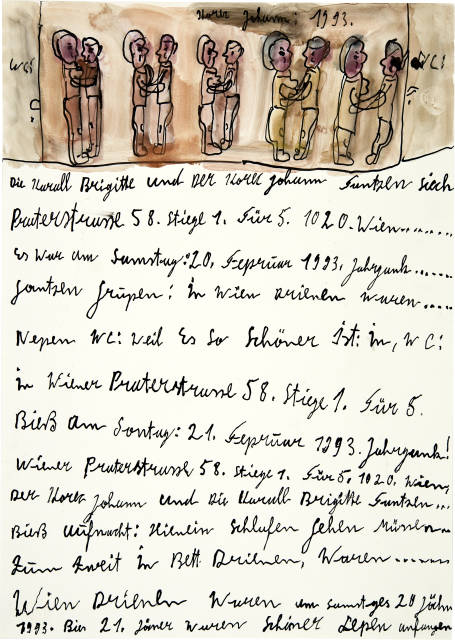 Korec Johann: 1993.
WC:
WC:
Die Kurall Brigitte und Der Korec Johann Funtzen siech
Praterstrasse 58. Stiege 1. Für 5. 1020. Wien........
Es War am Samstag: 20. Fepruar 1993. Jahrgank......
Gantzen Grupen: in Wien Drienen Waren.....
Nepen WC: Weil Es So Schöner Ist: in, WC:
in Wiener Praterstrasse 58. Stiege 1. Für 5.
Bieß Am Sontag: 21. Fepruar 1993. Jahrgank!
Wiener Praterstrasse 58. Stiege 1. Für 5. 1020. Wien,
Der Korec Johann und Die Kurall Brigitte Funtzen...
Bieß Aufnacht: Hienein Schlafen Gehen Müssen..
Zum Zweit in Bett Drienen, Waren.......
Wien Drienen Waren am Samstges 20 Jäner
1993. Bies 21. Jäner Waren Schöner Lepen anfangen